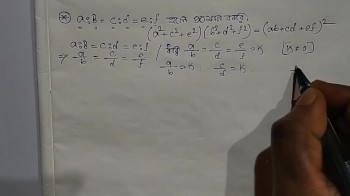 a:b = c:d = e:f হলে প্রমাণ কর,
(a²+c²+e²)(b²+d²+f²) = (ab+cd+ef)²
a:b = c:d = e:f / ধরি a/b = c/d = e/f = K [K≠0]
⇒ a/b = c/d = e/f a/b = K c/d = K